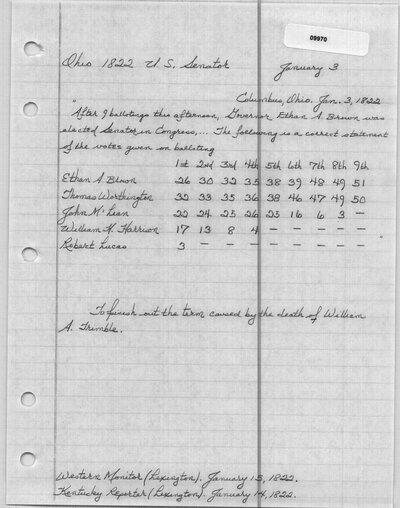 09970
Ohio 1822 U.S. Senator January 3
Columbus, Ohio. Jan. 3, 1822
"After 9 ballotings this afternoon, Governor Ethan A. Brown was
elected Senator in Congress,... The following is a correct statement
of the votes given on balloting
1st 2nd 3rd 4th 5th 6th 7th 8th 9th
Ethan A. Brown 26 30 32 35 38 39 48 49 51
Thomas Worthington 32 33 35 36 38 46 47 49 50
John M'Lean 22 24 25 26 25 16 6 3 —
William H. Harrison 17 13 8 4 — — — — —
Robert Lucas 3 — — — — — — — —
To finish out the term caused by the death of William
A. Trimble.
Western Monitor (Lexington). January 15, 1822.
Kentucky Reporter (Lexington). January 14, 1822.